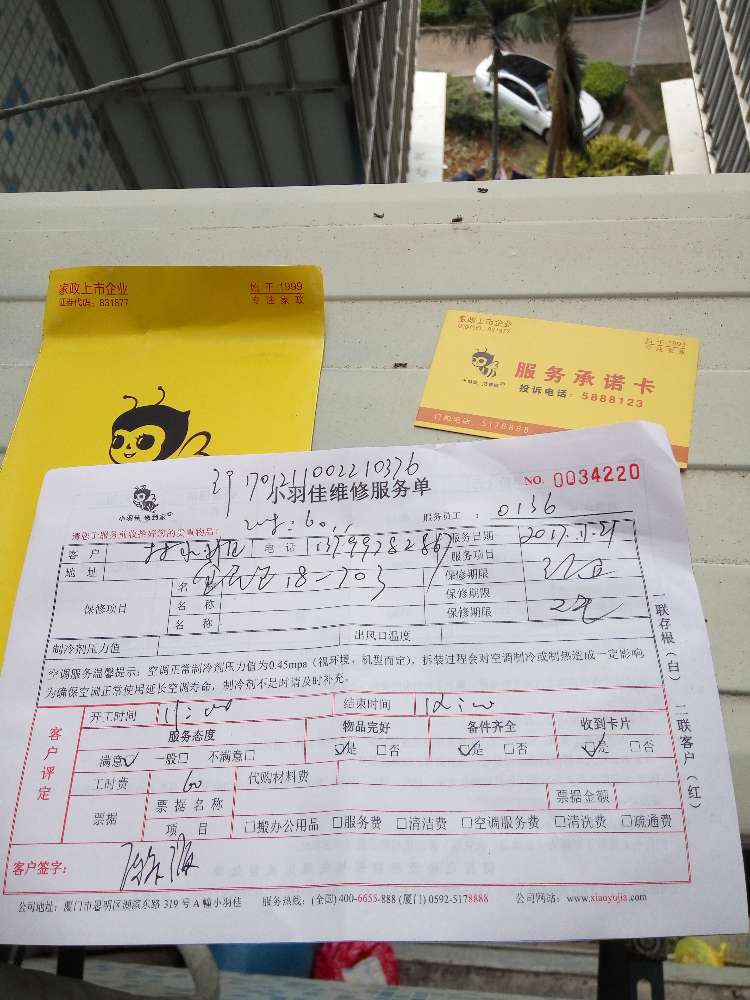 家政上市企业
证券代码：831877
始于1999
专注家政
家政上市企业
证券代码：831877
始于1999
专注家政
服务承诺卡
投诉电话：5888123
订购电话：5178888
701211002210376
小羽佳维修服务单
NO. 0034220
小羽佳 快到家
服务员工：0136
请您于服务前收拾好您的贵重物品！
客户
电话
服务日期
地址
18-703
服务项目
保修项目
名称
保修期限
名称
保修期限
名称
保修期限
制冷剂压力值
出风口温度
空调服务温馨提示：空调正常制冷剂压力值为0.45mpa（视环境、机型而定），拆装过程会对空调制冷或制热造成一定影响
为确保空调正常使用延长空调寿命，制冷剂不足时请及时补充。
一联存根（白）二联客户（红）
客户评定
开工时间 11:00
结束时间
服务态度
物品完好
备件齐全
收到卡片
满意 一般 不满意
是 否
是 否
是 否
工时费 60
代购材料费
票据
票据名称
票据金额
项目
搬办公用品 服务费 清洁费 空调服务费 清洗费 疏通费
客户签字：
公司地址：厦门市思明区湖滨东路319号A幢小羽佳 服务热线：(全国)400-6655-888 (厦门) 0592-5178888 公司网站：www.xiaoyujia.com